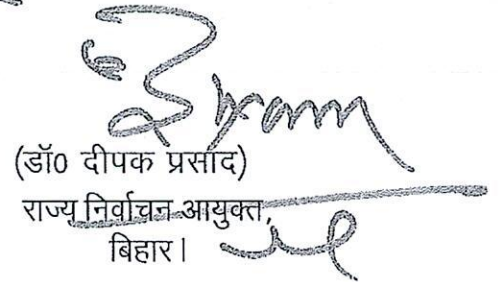 (डॉ0 दीपक प्रसाद)
राज्य निर्वाचन आयुक्त,
बिहार।